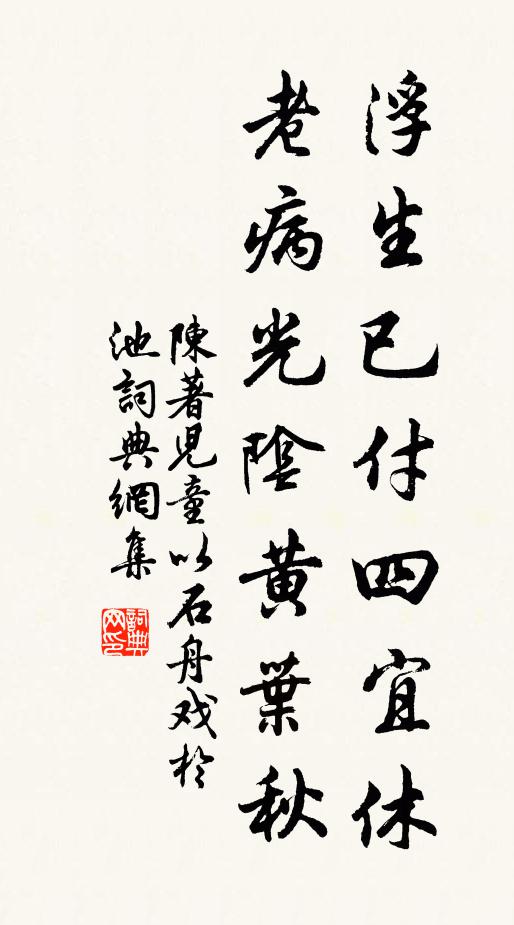 浮生已付四宜休
老病光陰黃葉秋
陳著兒童以石舟戏於
池詞典網集
詞典网印